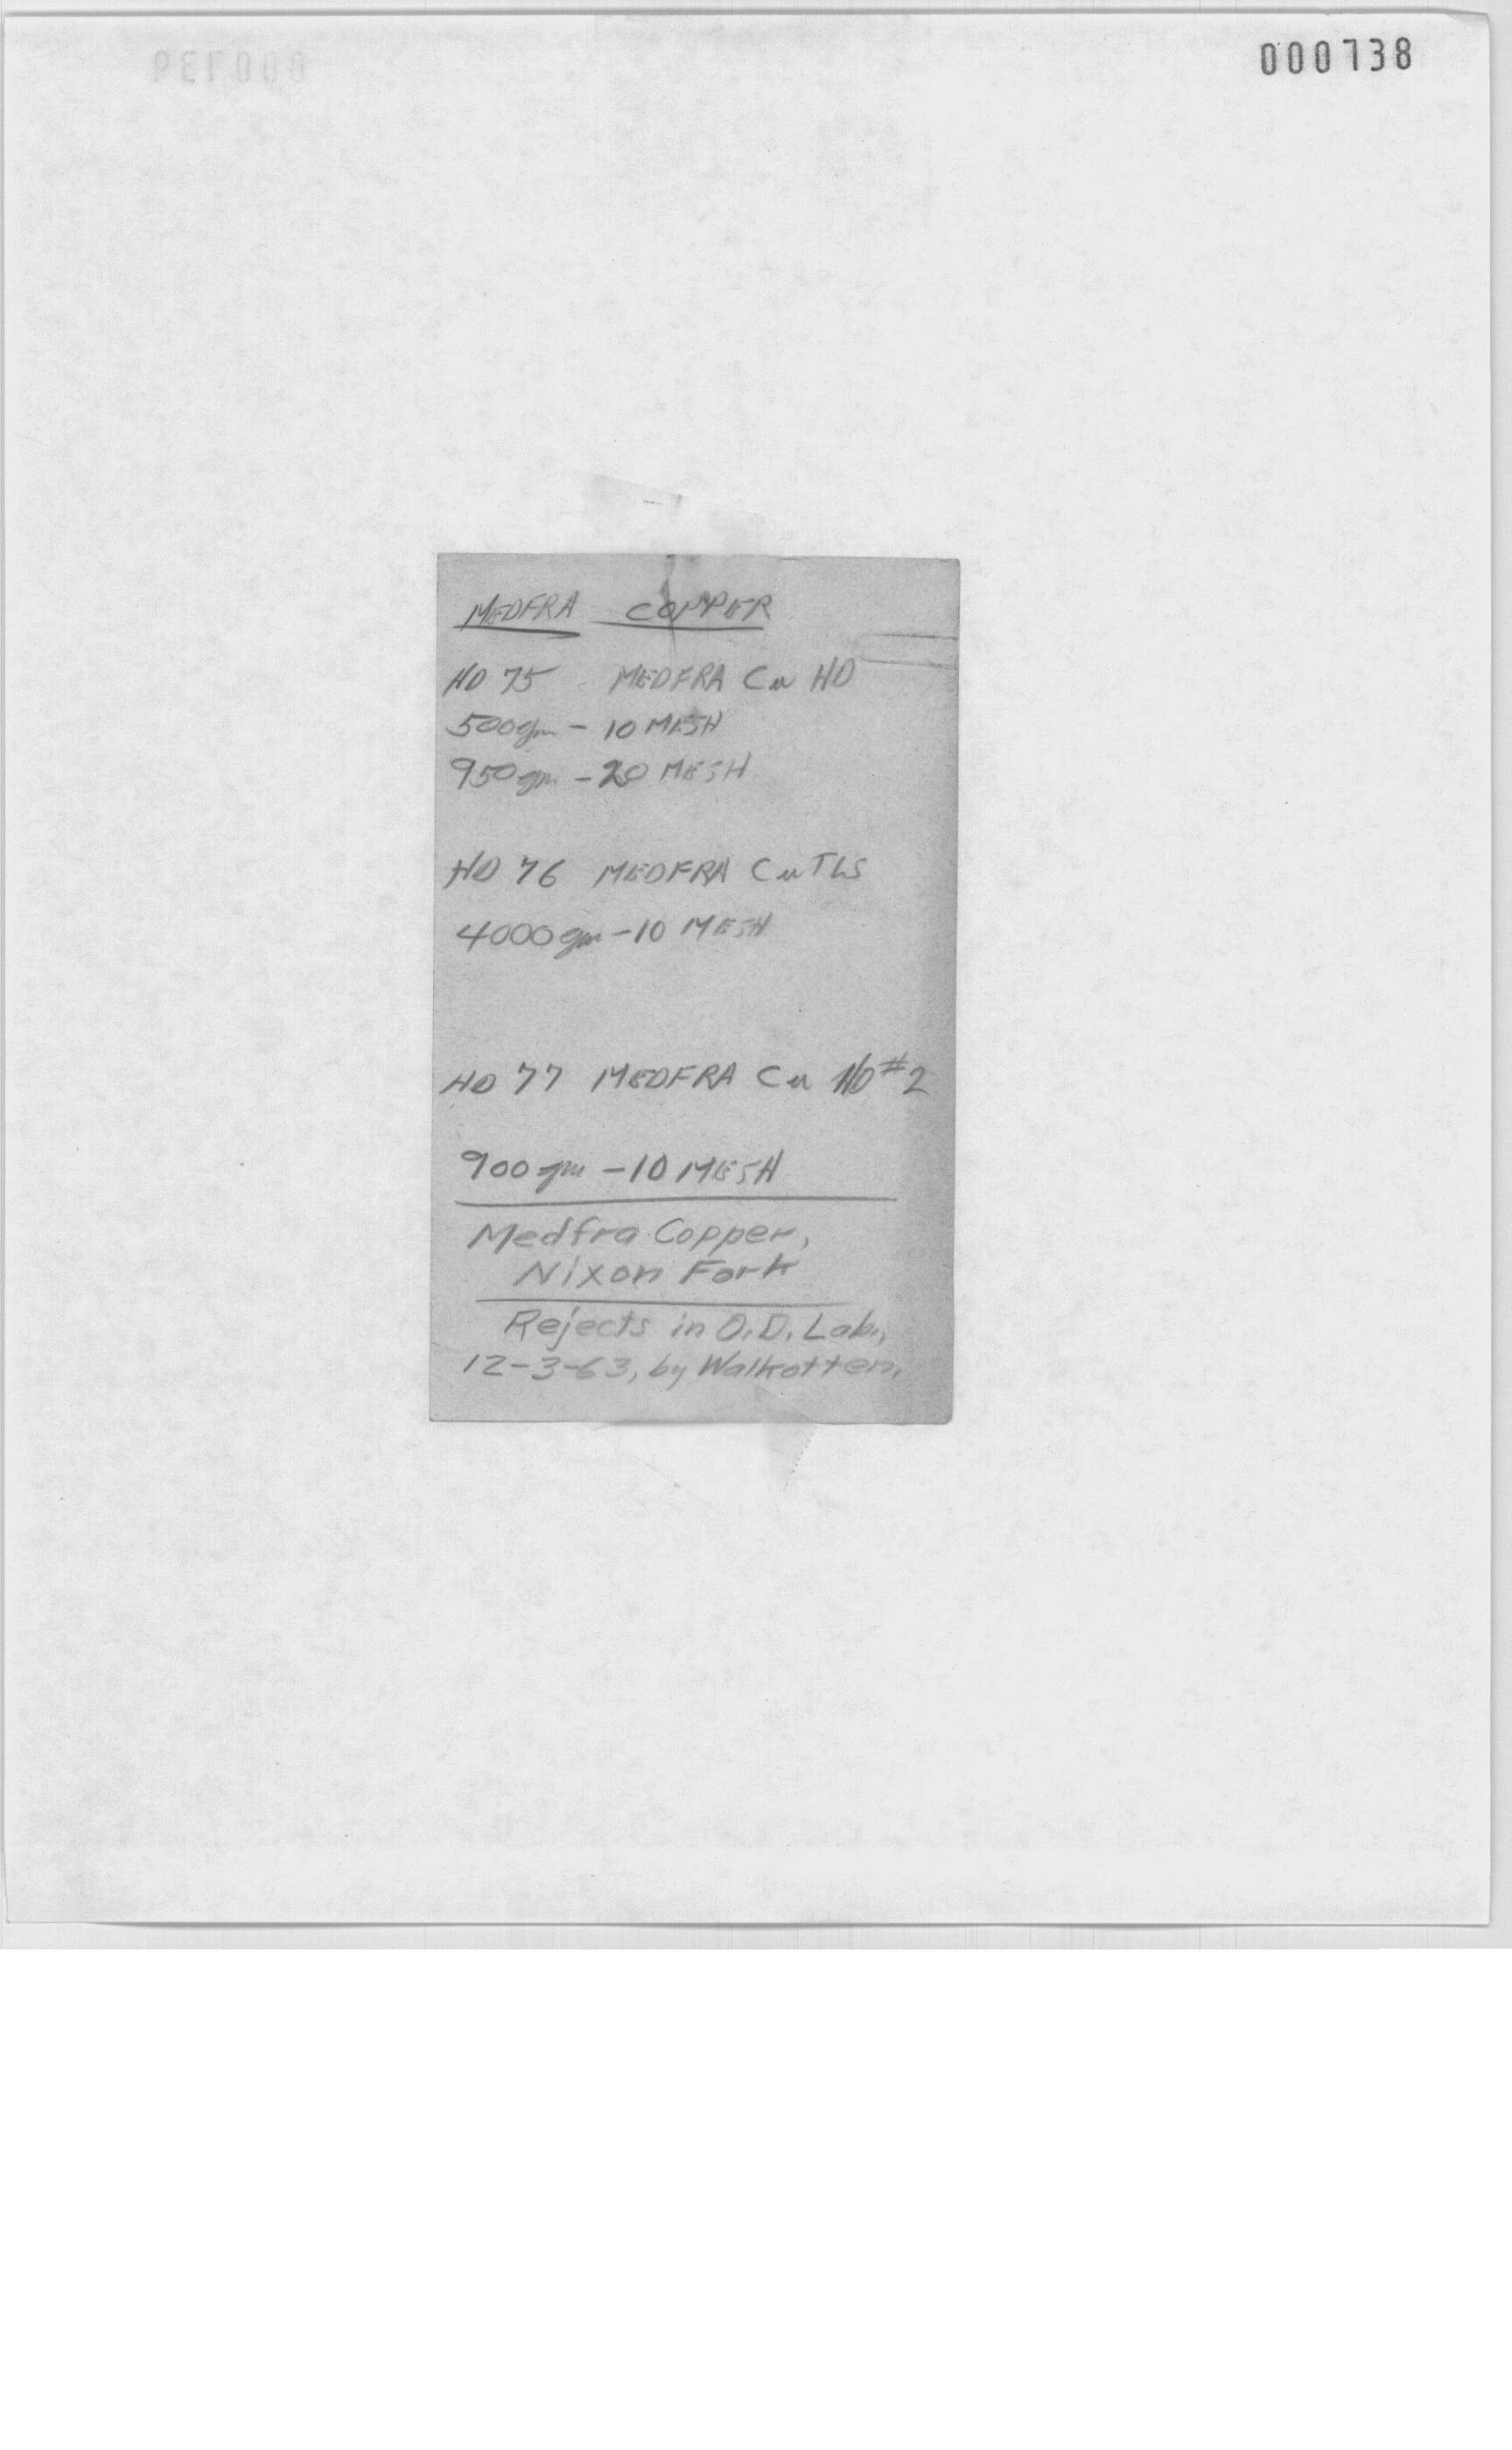 000738
MEDFRA COPPER
HD 75 MEDFRA Cu HD
500gm - 10 MESH
950gm - 20 MESH
HD 76 MEDFRA Cu TLS
4000gm - 10 MESH
HD 77 MEDFRA Cu HD #2
900gm - 10 MESH
Medfra Copper,
Nixon Fork
Rejects in O.D. Lab.,
12-3-63, by Walkotten.